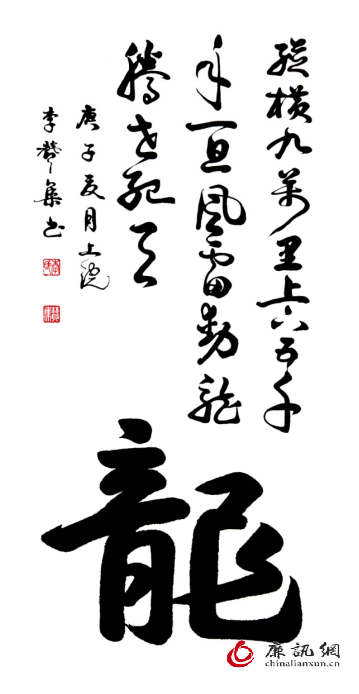 縱橫九萬里上下五千
年一旦風雷動龍
騰世紀天
庚子夏月上浣
李贊集书
龍
廉訊網
chinalianxun.cn